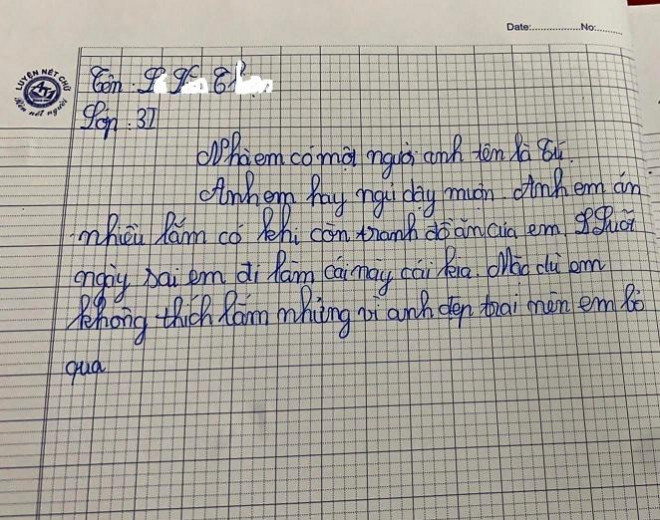 Date:..............No:.........
LUYỆN NÉT CHỮ
Rèn nết người
Tên:
Lớp: 3I
Nhà em có một người anh tên là Tú.
Anh em hay ngủ dậy muộn. Anh em ăn
nhiều lắm có khi còn tranh đồ ăn của em. Suốt
ngày sai em đi làm cái này cái kia. Mặc dù em
không thích lắm nhưng vì anh đẹp trai nên em bỏ
qua